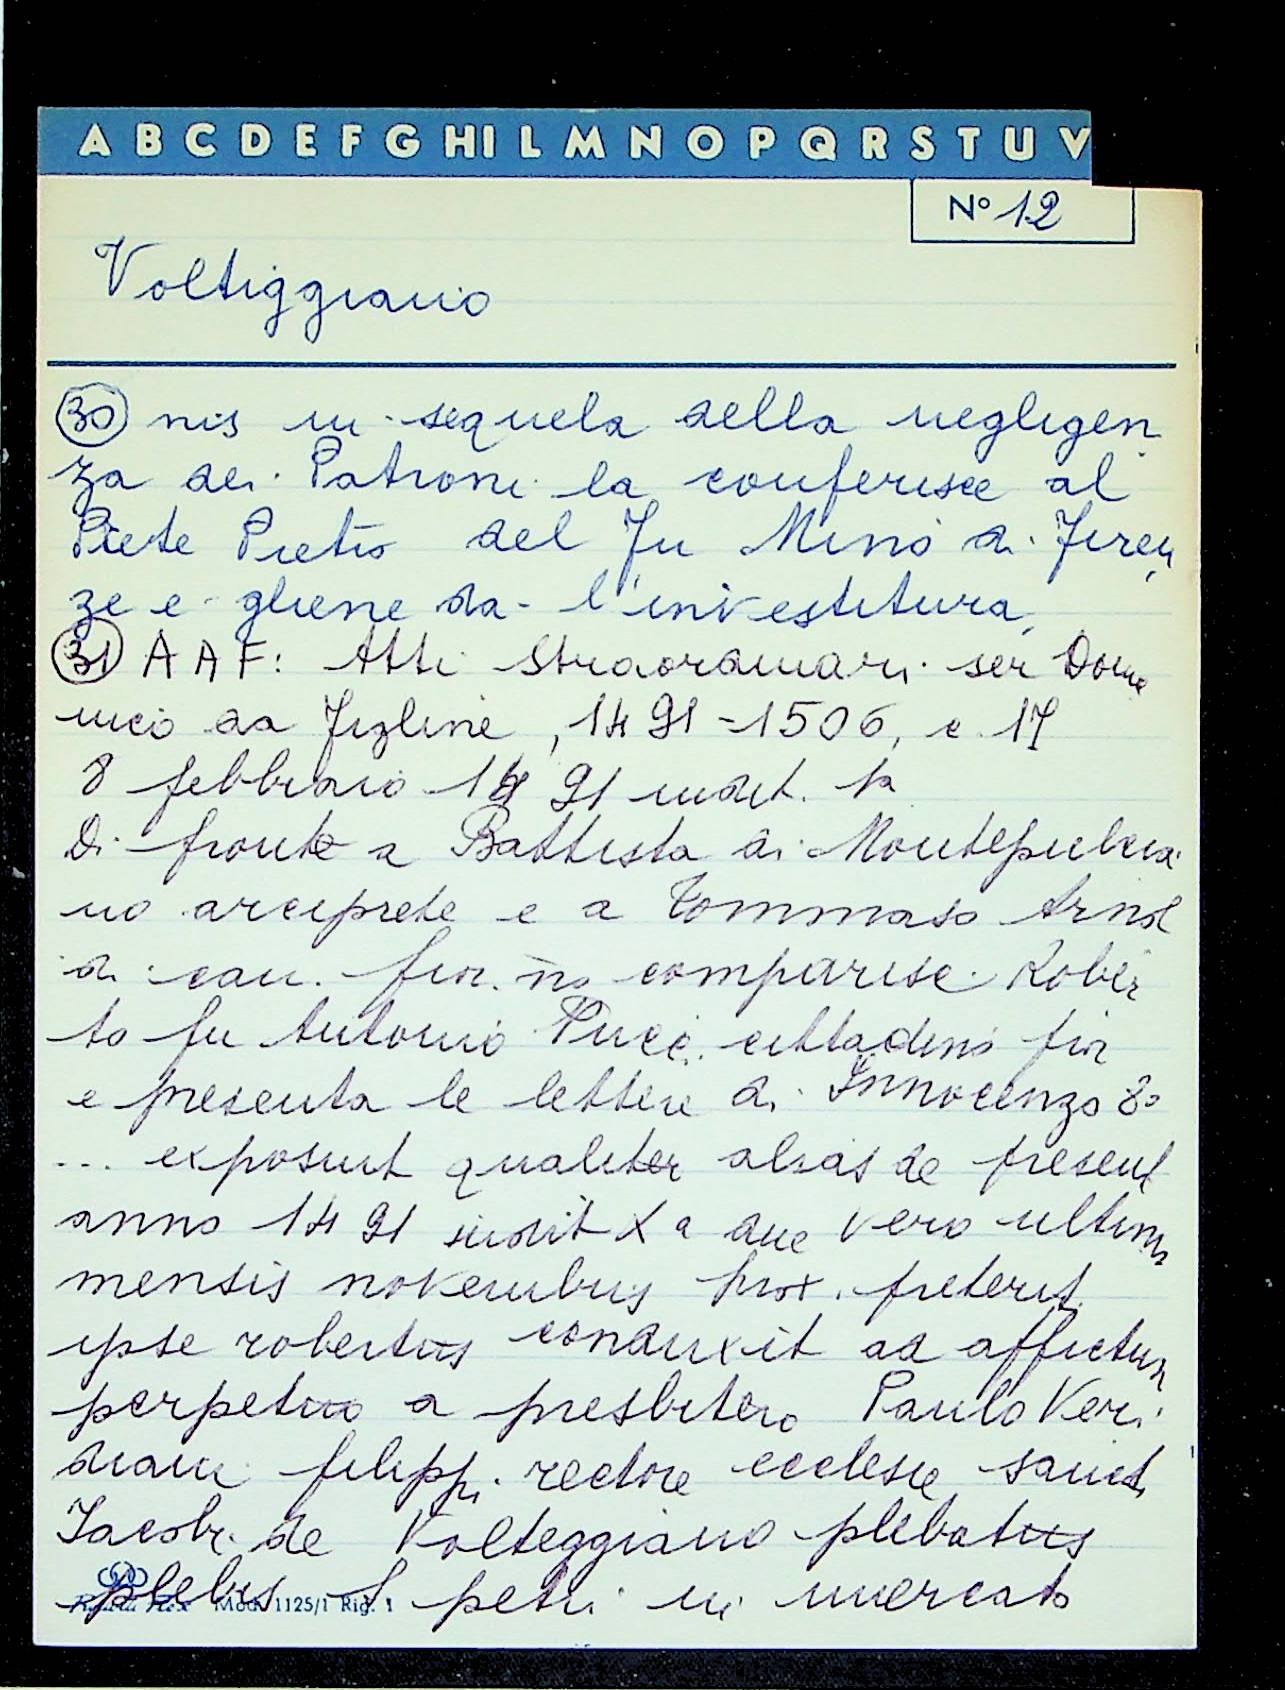 A B C D E F G H I L M N O P Q R S T U V
N° 12
Voltiggiano
30 nis in sequela della negligen
za dei Patroni la conferisce al
Prete Pietro del fu Mino di Firen
ze e gliene da l'investitura.
31 A A F: Atti Straordinari ser Dome
nico da Figline, 1491-1506, c. 17
8 febbraio 1491 indit. 
Di fronte a Battista di Montepulcia
no arciprete e a Tommaso Arnol
di can. fior. no comparisce Rober
to fu Antonio Pucci cittadino fior
e presenta le lettere di Innocenzo 8°
... exposuit qualiter alias de present
anno 1491 indit Xa die vero ultim
mensis novembris prox. preterit
ipse robertus conduxit ad affictum
perpetuo a presbitero Paulo Veri
diani filippi rectore ecclesie sancti
Iacobi de Volteggiano plebatus
plebis S petri in mercato
Mod. 1125/1 Rig. 1